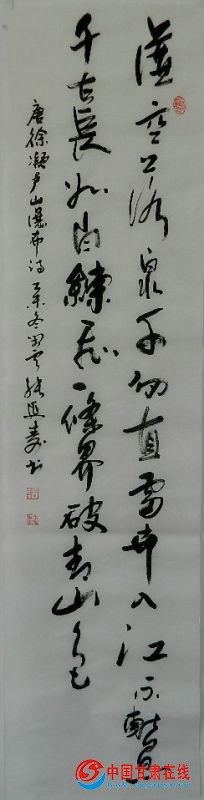 虛空落泉千仞直雷奔入江不暫息
千古長如白練飛一條界破青山色
唐徐凝庐山瀑布诗 乙未冬
中国甘肃在线